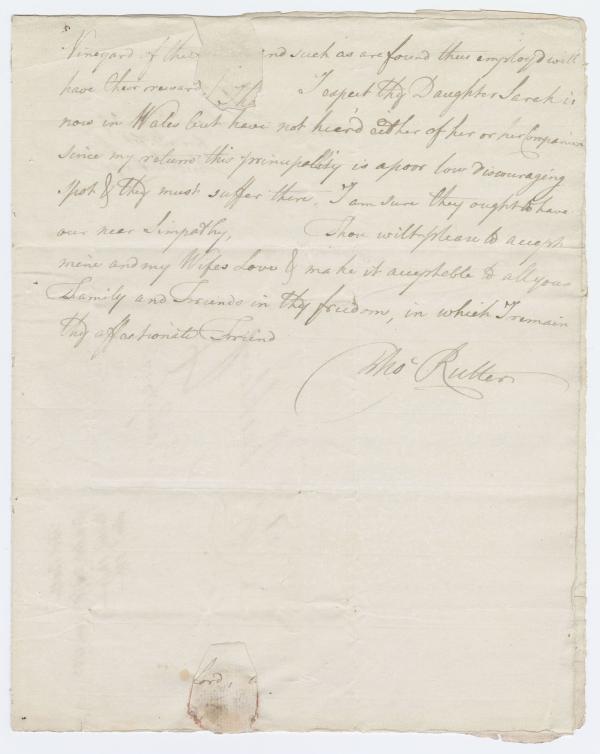 Vineyard of the nd such as are found thus employ'd will
have their reward. Th I expect thy Daughter Sarah is
now in Wales but have not heard either of her or her Companion
since my return this principallity is a poor low discouraging
spot & they must suffer there, I am sure they ought to have
our near Simpathy, Thou wilt please to accept
mine and my Wifes Love & make it acceptable to all your
Family and Friends in thy freedom, in which I remain
thy affectionate Friend
Thos Rutter
lord,